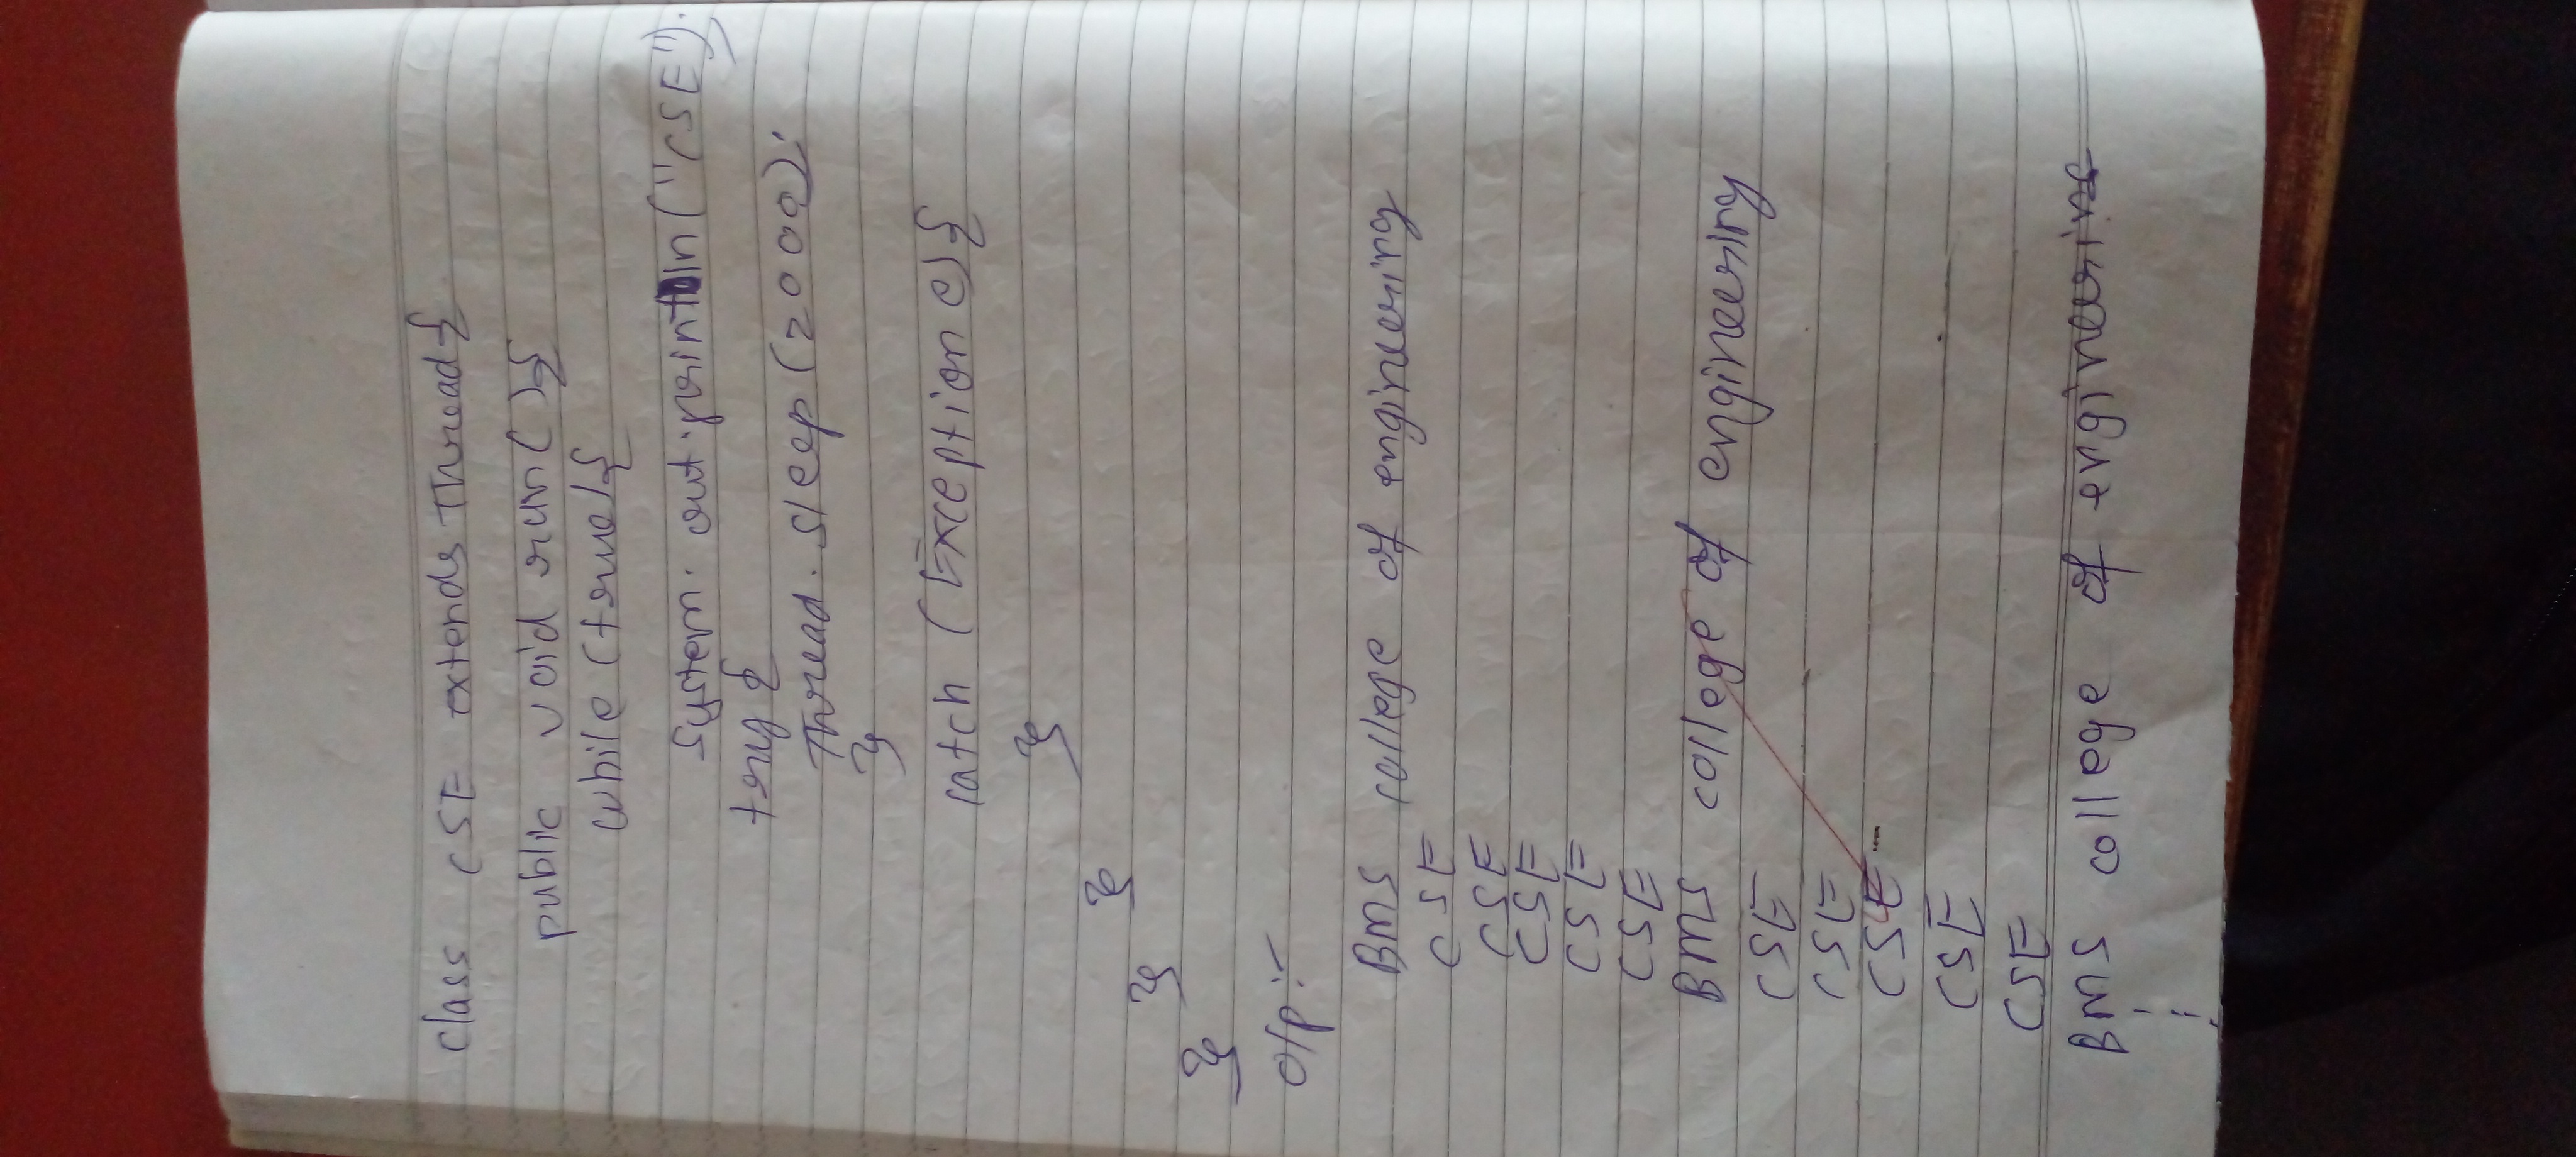 class CSE extends Thread{
public void run(){
while (true){
System.out.println("CSE");
try{
Thread.sleep(2000);
}
catch (Exception e){
}
}
}
}
O/p :-
BMS college of engineering
CSE
CSE
CSE
CSE
CSE
BMS college of engineering
CSE
CSE
CSE
CSE
CSE
BMS college of engineering